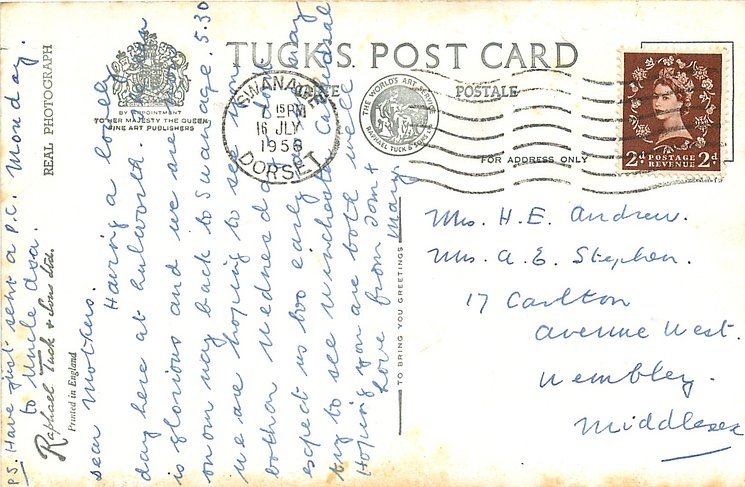 TUCK'S POST CARD
CARTE POSTALE
BY APPOINTMENT
TO HER MAJESTY THE QUEEN
FINE ART PUBLISHERS
SWANAGE
7 15 PM
16 JLY
1956
DORSET
THE WORLD'S ART SERVICE
RAPHAEL TUCK & SONS LTD
FOR ADDRESS ONLY
2d POSTAGE REVENUE 2d
REAL PHOTOGRAPH
Raphael Tuck & Sons Ltd.
Printed in England
TO BRING YOU GREETINGS
Dear Mothers.
Having a lovely
day here at Lulworth.
is glorious and we are
on our way back to Swanage. 5.30
we are hoping to see you
both on Wednesday
expect us too early as we may
try to see Winchester Cathedral
Hoping you are both well
Love from Tom +
Mary.
PS. Have just sent a P.C.
to Uncle Asa.
Monday.
Mrs. H. E. Andrew.
Mrs. A. E. Stephen.
17 Carlton
Avenue West.
Wembley.
Middlesex